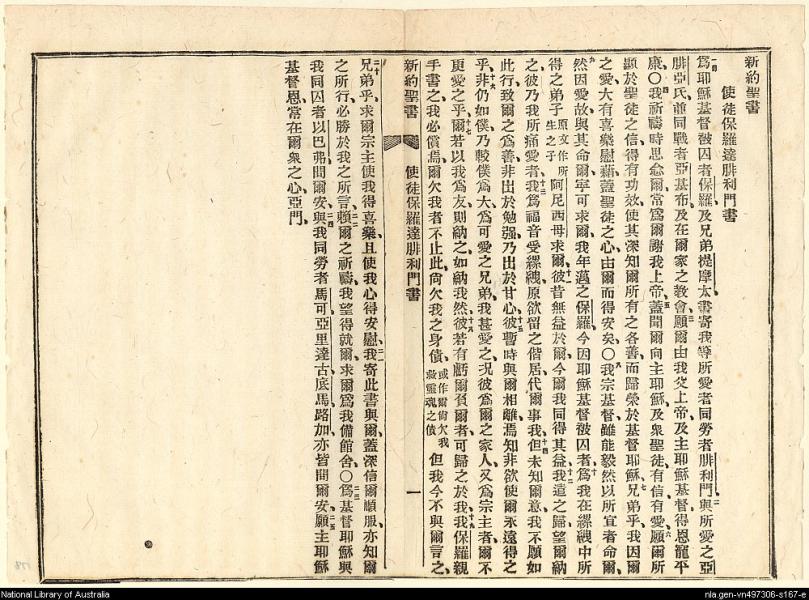 新約聖書
使徒保羅達腓利門書
爲耶穌基督被囚者保羅及兄弟提摩太書寄我等所愛者同勞者腓利門與所愛之亞
腓亞氏並同戰者亞基布及在爾家之教會願爾由我父上帝及主耶穌基督得恩寵平
康〇我祈禱時思念爾常爲爾謝我上帝蓋聞爾向主耶穌及衆聖徒有信有愛願爾所
顯於聖徒之信得有功效使其深知爾所有之各善而歸榮於基督耶穌兄弟乎我因爾
之愛大有喜樂慰藉蓋聖徒之心由爾而得安矣〇我宗基督雖能毅然以所宜者命爾
然因愛故與其命爾寧可求爾我年邁之保羅今因耶穌基督被囚者爲我在縲絏中所
得之弟子原文作所生之子阿尼西母求爾彼昔無益於爾今爾我同得其益我遣之歸望爾納
之彼乃我所痛愛者我爲福音受縲絏原欲留之偕居代爾事我但未知爾意我不願如
此行致爾之爲善非出於勉强乃出於甘心彼暫時與爾相離焉知非欲使爾永遠得之
乎非仍如僕乃較僕爲大爲可愛之兄弟我甚愛之况彼爲爾之家人又爲宗主者爾不
更愛之乎爾若以我爲友則納之如納我然彼若有虧爾負爾者可歸之於我我保羅親
手書之我必償焉爾欠我者不止此尚欠我之身債或作爾尚欠我救靈魂之債但我今不與爾言之
新約聖書 使徒保羅達腓利門書 一
兄弟乎求爾宗主使我得喜樂且使我心得安慰我寄此書與爾蓋深信爾順服亦知爾
之所行必勝於我之所言賴爾之祈禱我望得就爾求爾爲我備館舍〇爲基督耶穌與
我同囚者以巴弗問爾安與我同勞者馬可亞里達古底馬路加亦皆問爾安願主耶穌
基督恩常在爾衆之心亞門
National Library of Australia
nla.gen-vn497306-s167-e